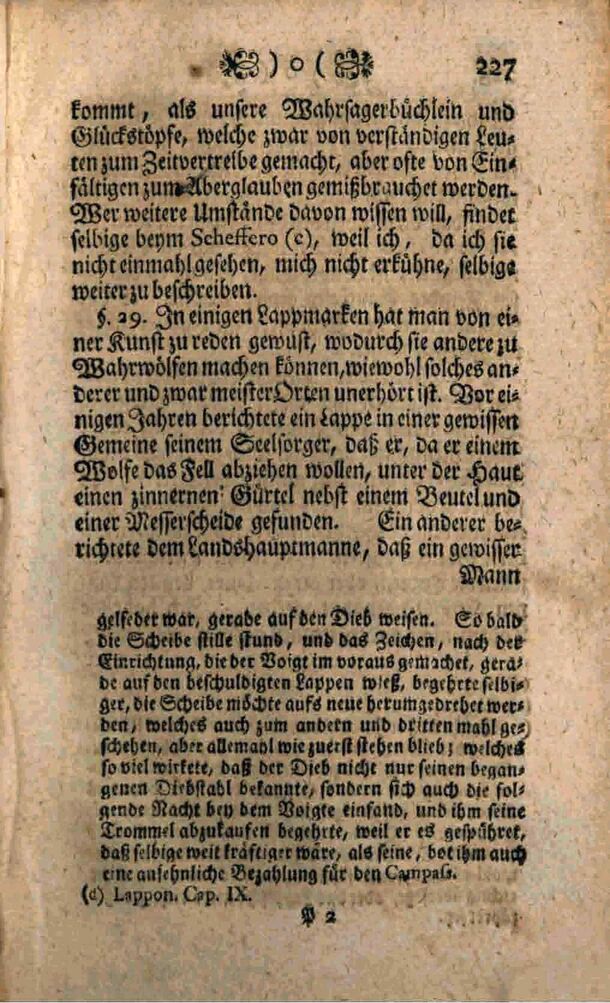 ) o ( 227
kommt, als unsere Wahrsagerbüchlein und
Glückstöpfe, welche zwar von verständigen Leu-
ten zum Zeitvertreibe gemacht, aber ofte von Ein-
fältigen zum Aberglauben gemißbrauchet werden.
Wer weitere Umstände davon wissen will, findet
selbige beym Scheffero (c), weil ich, da ich sie
nicht einmahl gesehen, mich nicht erkühne, selbige
weiter zu beschreiben.
§. 29. In einigen Lappmarken hat man von ei-
ner Kunst zu reden gewust, wodurch sie andere zu
Wahrwölfen machen können, wiewohl solches an-
derer und zwar meister Orten unerhört ist. Vor ei-
nigen Jahren berichtete ein Lappe in einer gewissen
Gemeine seinem Seelsorger, daß er, da er einem
Wolfe das Fell abziehen wollen, unter der Haut
einen zinnernen Gürtel nebst einem Beutel und
einer Messerscheide gefunden. Ein anderer be-
richtete dem Landshauptmanne, daß ein gewisser
Mann
gelfeder war, gerade auf den Dieb weisen. So bald
die Scheibe stille stund, und das Zeichen, nach der
Einrichtung, die der Voigt im voraus gemachet, gera-
de auf den beschuldigten Lappen wieß, begehrte selbi-
ger, die Scheibe möchte aufs neue herumgedrehet wer-
den, welches auch zum andern und dritten mahl ge-
schehen, aber allemahl wie zuerst stehen blieb; welches
so viel wirkete, daß der Dieb nicht nur seinen began-
genen Diebstahl bekannte, sondern sich auch die fol-
gende Nacht bey dem Voigte einfand, und ihm seine
Trommel abzukaufen begehrte, weil er es gespühret,
daß selbige weit kräftiger wäre, als seine, bot ihm auch
eine ansehnliche Bezahlung für den Campaß.
(c) Lappon. Cap. IX.
P 2